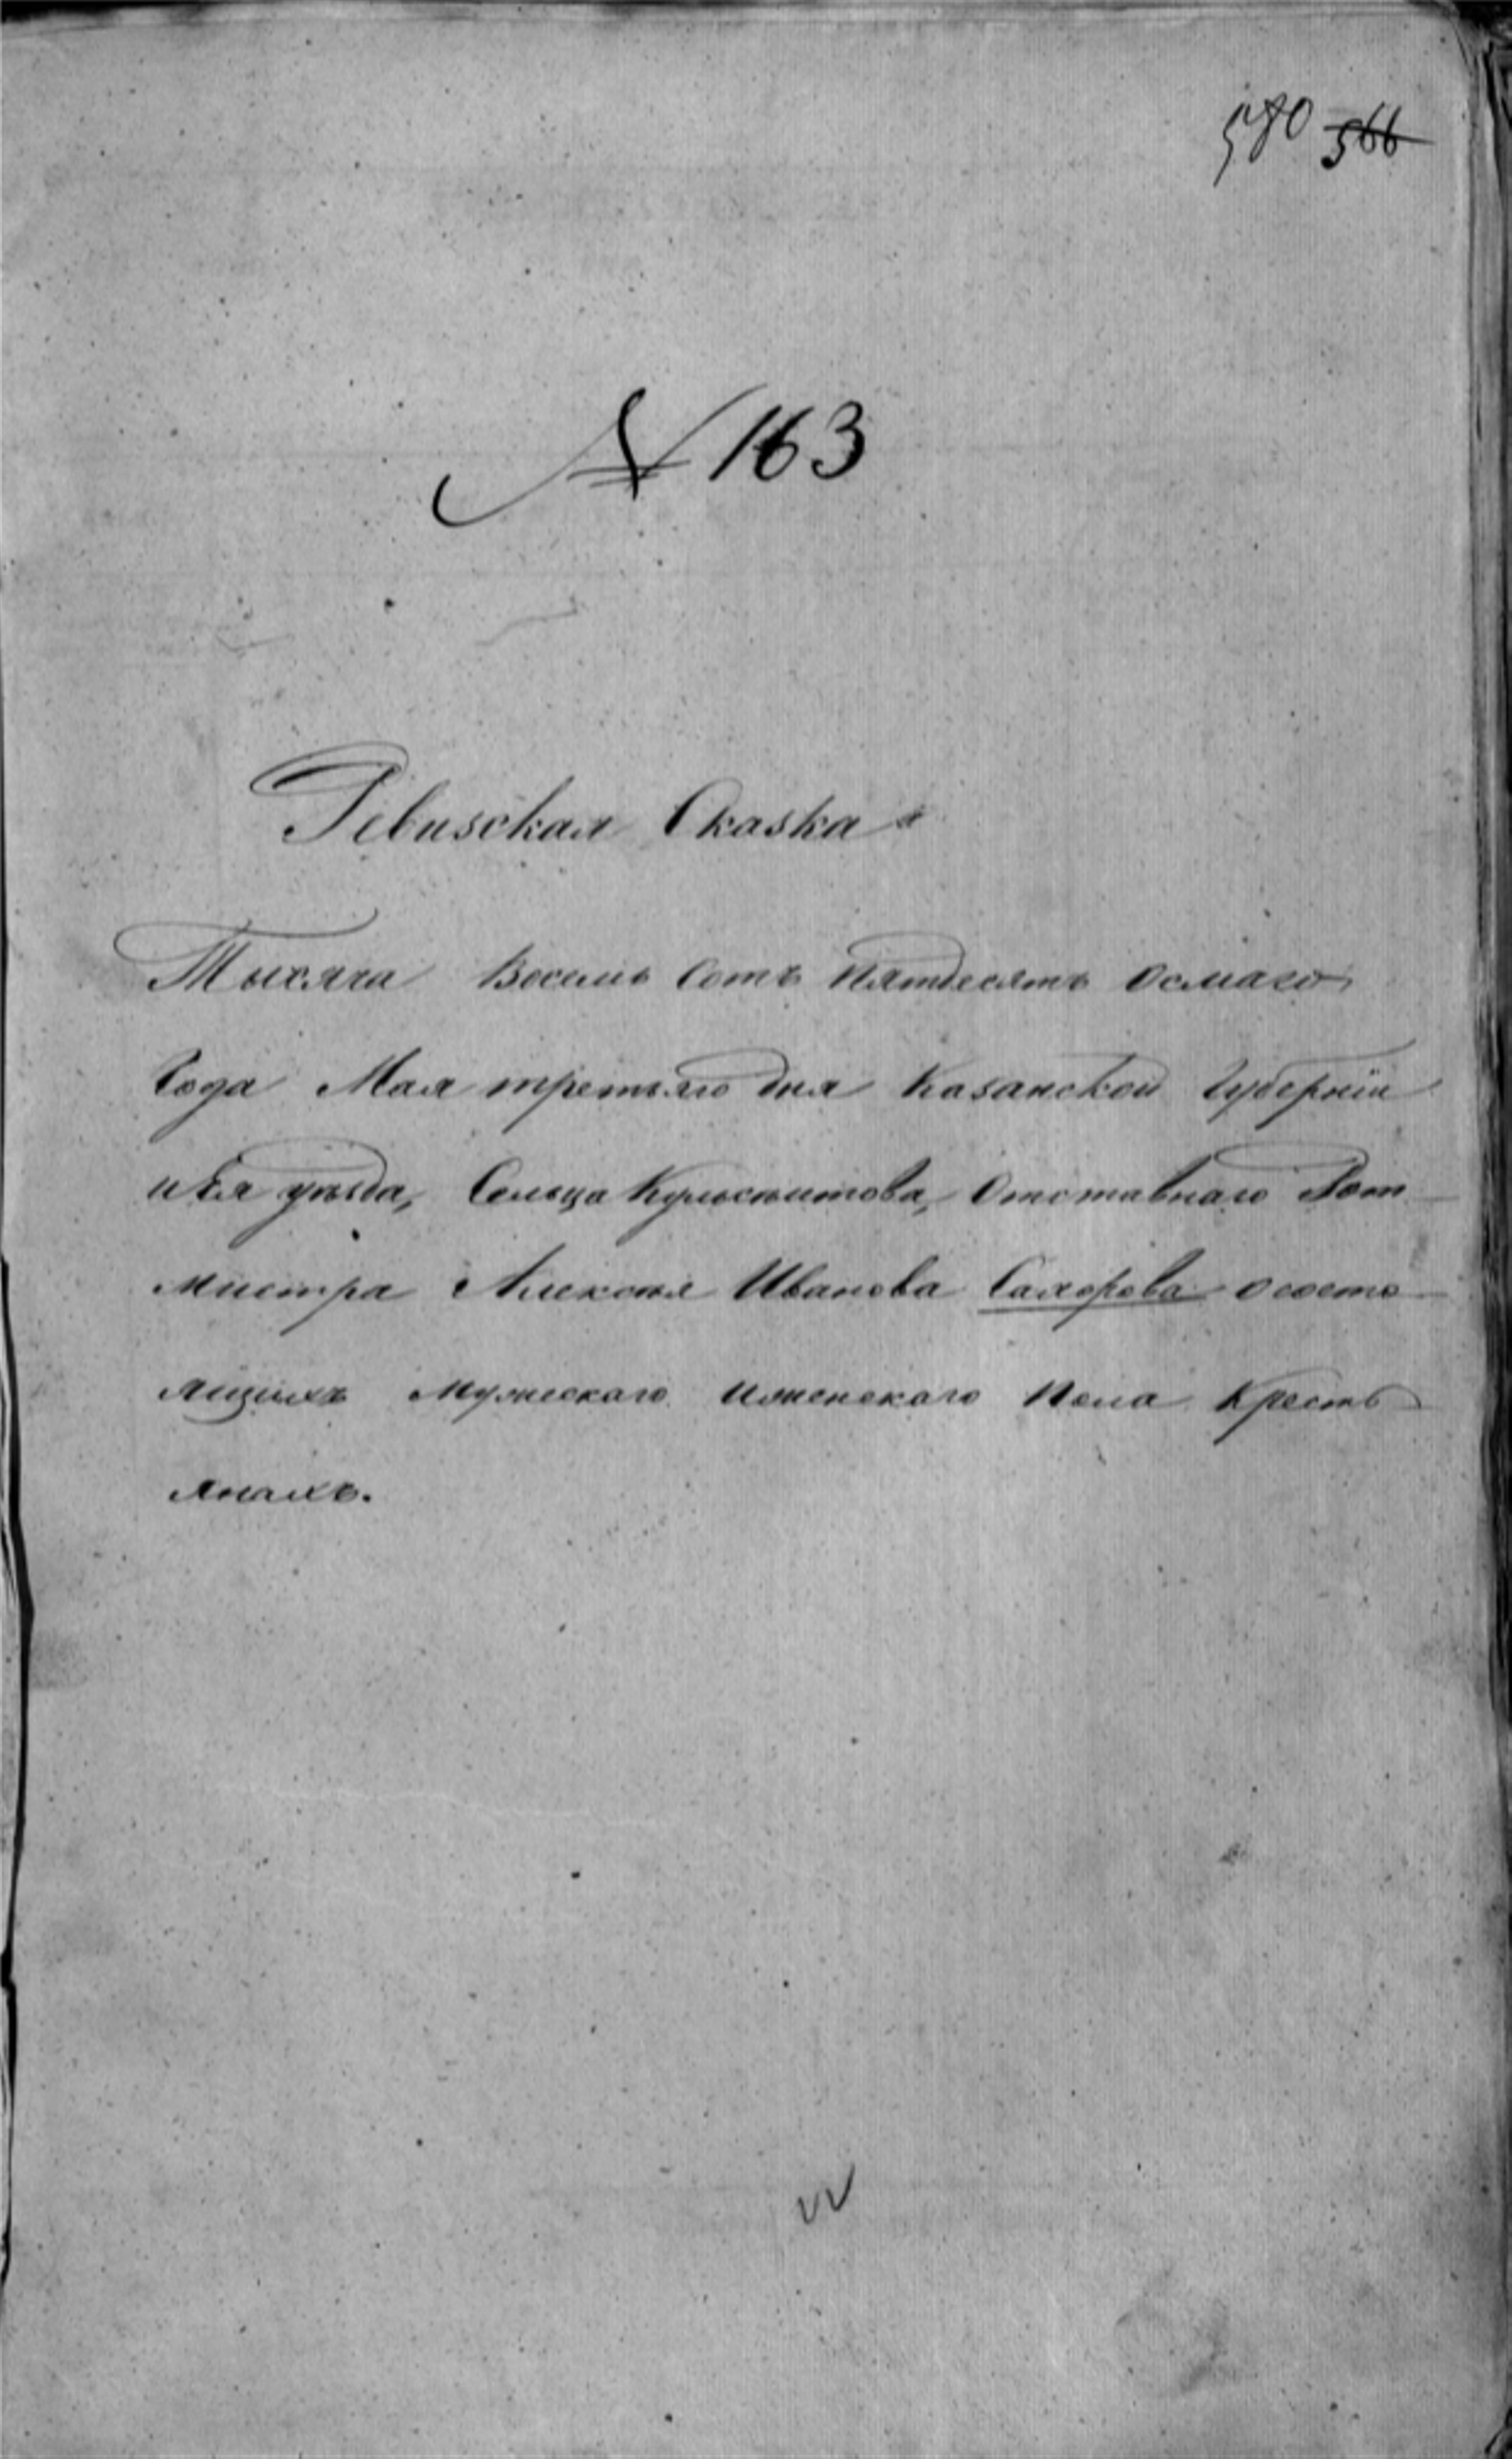 580 566
№ 163
Ревизская Сказка
Тысяча Восемь Сотъ Пятдесятъ Осмаго
Года Мая третьяго дня Казанской Губерніи
и уѣзда, Сельца Кульсѣитова, Отставнаго Рот
мистра Алексѣя Иванова о состо
ящихъ Мужескаго Иженскаго Пола Кресть
янахъ.